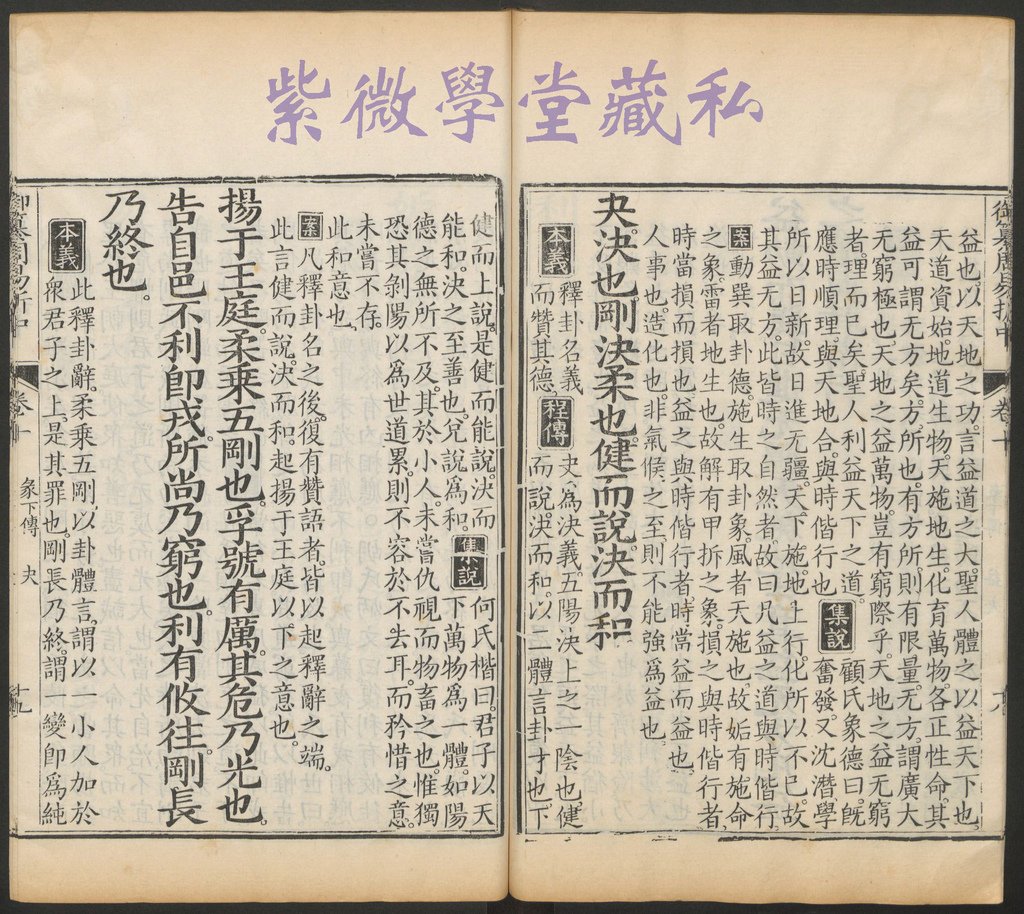 紫微學堂藏私
益也以天地之功言益道之大聖人體之以益天下也。
天道資始。地道生物。天施地生。化育萬物。各正性命。其
益可謂无方矣。方。所也。有方所。則有限量。无方。謂廣大
无窮極也。天地之益萬物。豈有窮際乎。天地之益无窮
者。理而已矣。聖人利益天下之道。
應時順理。與天地合。與時偕行也。
集說
顧氏象德曰。旣
奮發。又沈潛。學
所以日新。故日進无疆。天下施。地上行。化所以不已。故
其益无方。此皆時之自然者。故曰凡益之道。與時偕行。
案動巽取卦德。施生取卦象。風者天施也。故姤有施命
之象。雷者地生也。故解有甲拆之象。損之與時偕行者。
時當損而損也。益之與時偕行者。時當益而益也。
人事也。造化也。非氣候之至。則不能強爲益也。
夬。決也。剛決柔也。健而說。決而和。
本義
釋卦名義。
而贊其德。
程傳
夬爲決義。五陽決上之一陰也。健
而說。決而和。以二體言卦才也。下
健而上說。是健而能說。決而
能和。決之至善也。兌說爲和。
集說
何氏楷曰。君子以天
下萬物爲一體。如陽
德之無所不及。其於小人。未嘗仇視。而物畜之也。惟獨
恐其剝陽以爲世道累。則不容於不去耳。而矜惜之意。
未嘗不存。
此和意也。
案凡釋卦名之後。復有贊語者。皆以起釋辭之端。
此言健而說。決而和。起揚于王庭以下之意也。
揚于王庭。柔乘五剛也。孚號有厲。其危乃光也。
告自邑。不利卽戎。所尚乃窮也。利有攸往。剛長
乃終也。
本義
此釋卦辭。柔乘五剛。以卦體言。謂以一小人加於
衆君子之上。是其罪也。剛長乃終。謂一變卽爲純
彖下傳 夬
十九